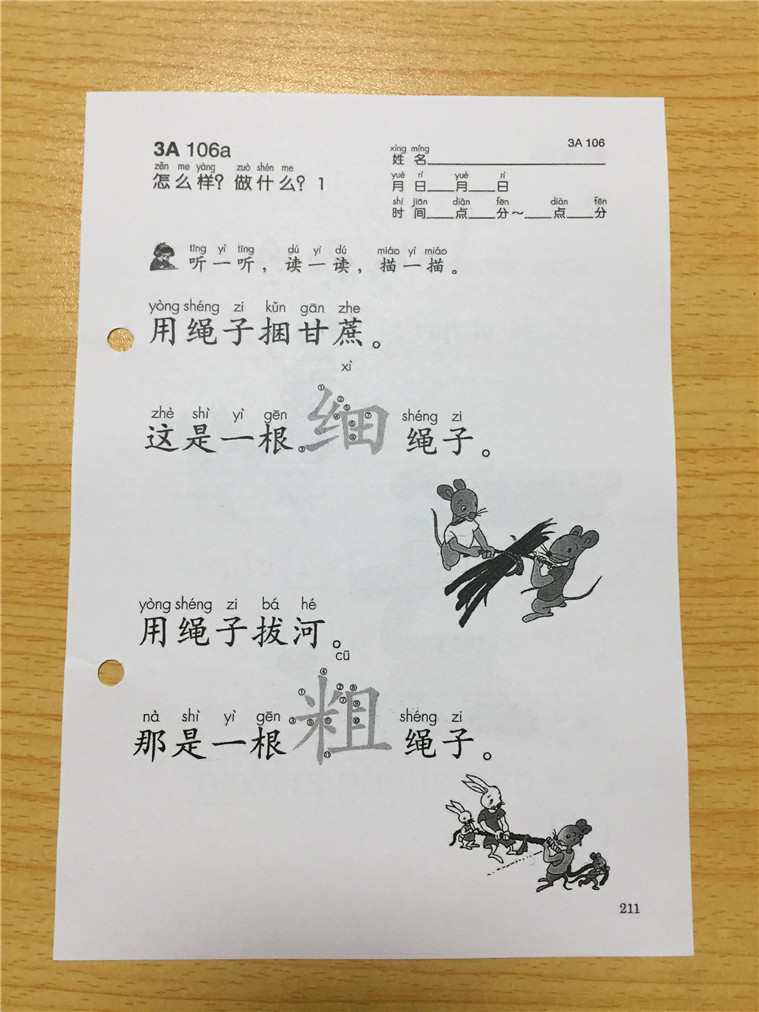 3A 106a
3A 106
zěn me yàng zuò shén me
怎么样？做什么？1
xìng míng
姓名
yuè rì yuè rì
月日 月 日
shí jiān diǎn fēn diǎn fēn
时间 点 分～ 点 分
tīng yì tīng dú yì dú miáo yì miáo
听一听，读一读，描一描。
yòng shéng zi kǔn gān zhe
用绳子捆甘蔗。
xì
zhè shì yì gēn shéng zi
这是一根细绳子。
yòng shéng zi bá hé
用绳子拔河。
cū
nà shì yì gēn shéng zi
那是一根粗绳子。
211